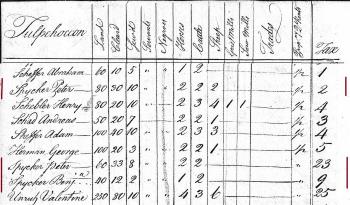 Tulpehoccon Land Cleard Servants Negroes Horses Cattle Sheep Grist Mills Saw Mills Trades Tax
Scheffer Abraham 60 10 5 " " 1 2 1
Spycker Peter 80 20 10 " " 2 2 2 pr 2
Schebler Henry 80 20 10 " " 2 3 4 1 1 pr 4
Stad Andreas 50 20 7 " " 2 2 1 pr 3
Sheffer Adam 100 40 10 " " 2 3 3 pr 4
Herman George 100 20 3 " " 2 2 1 pr 5
Spycker Peter 60 33 8 " " 2 2 " 23
Spycker Benj.n 40 12 2 " " 1 2 " 9
Unruh Valentine 250 80 10 " " 4 3 6 " 25